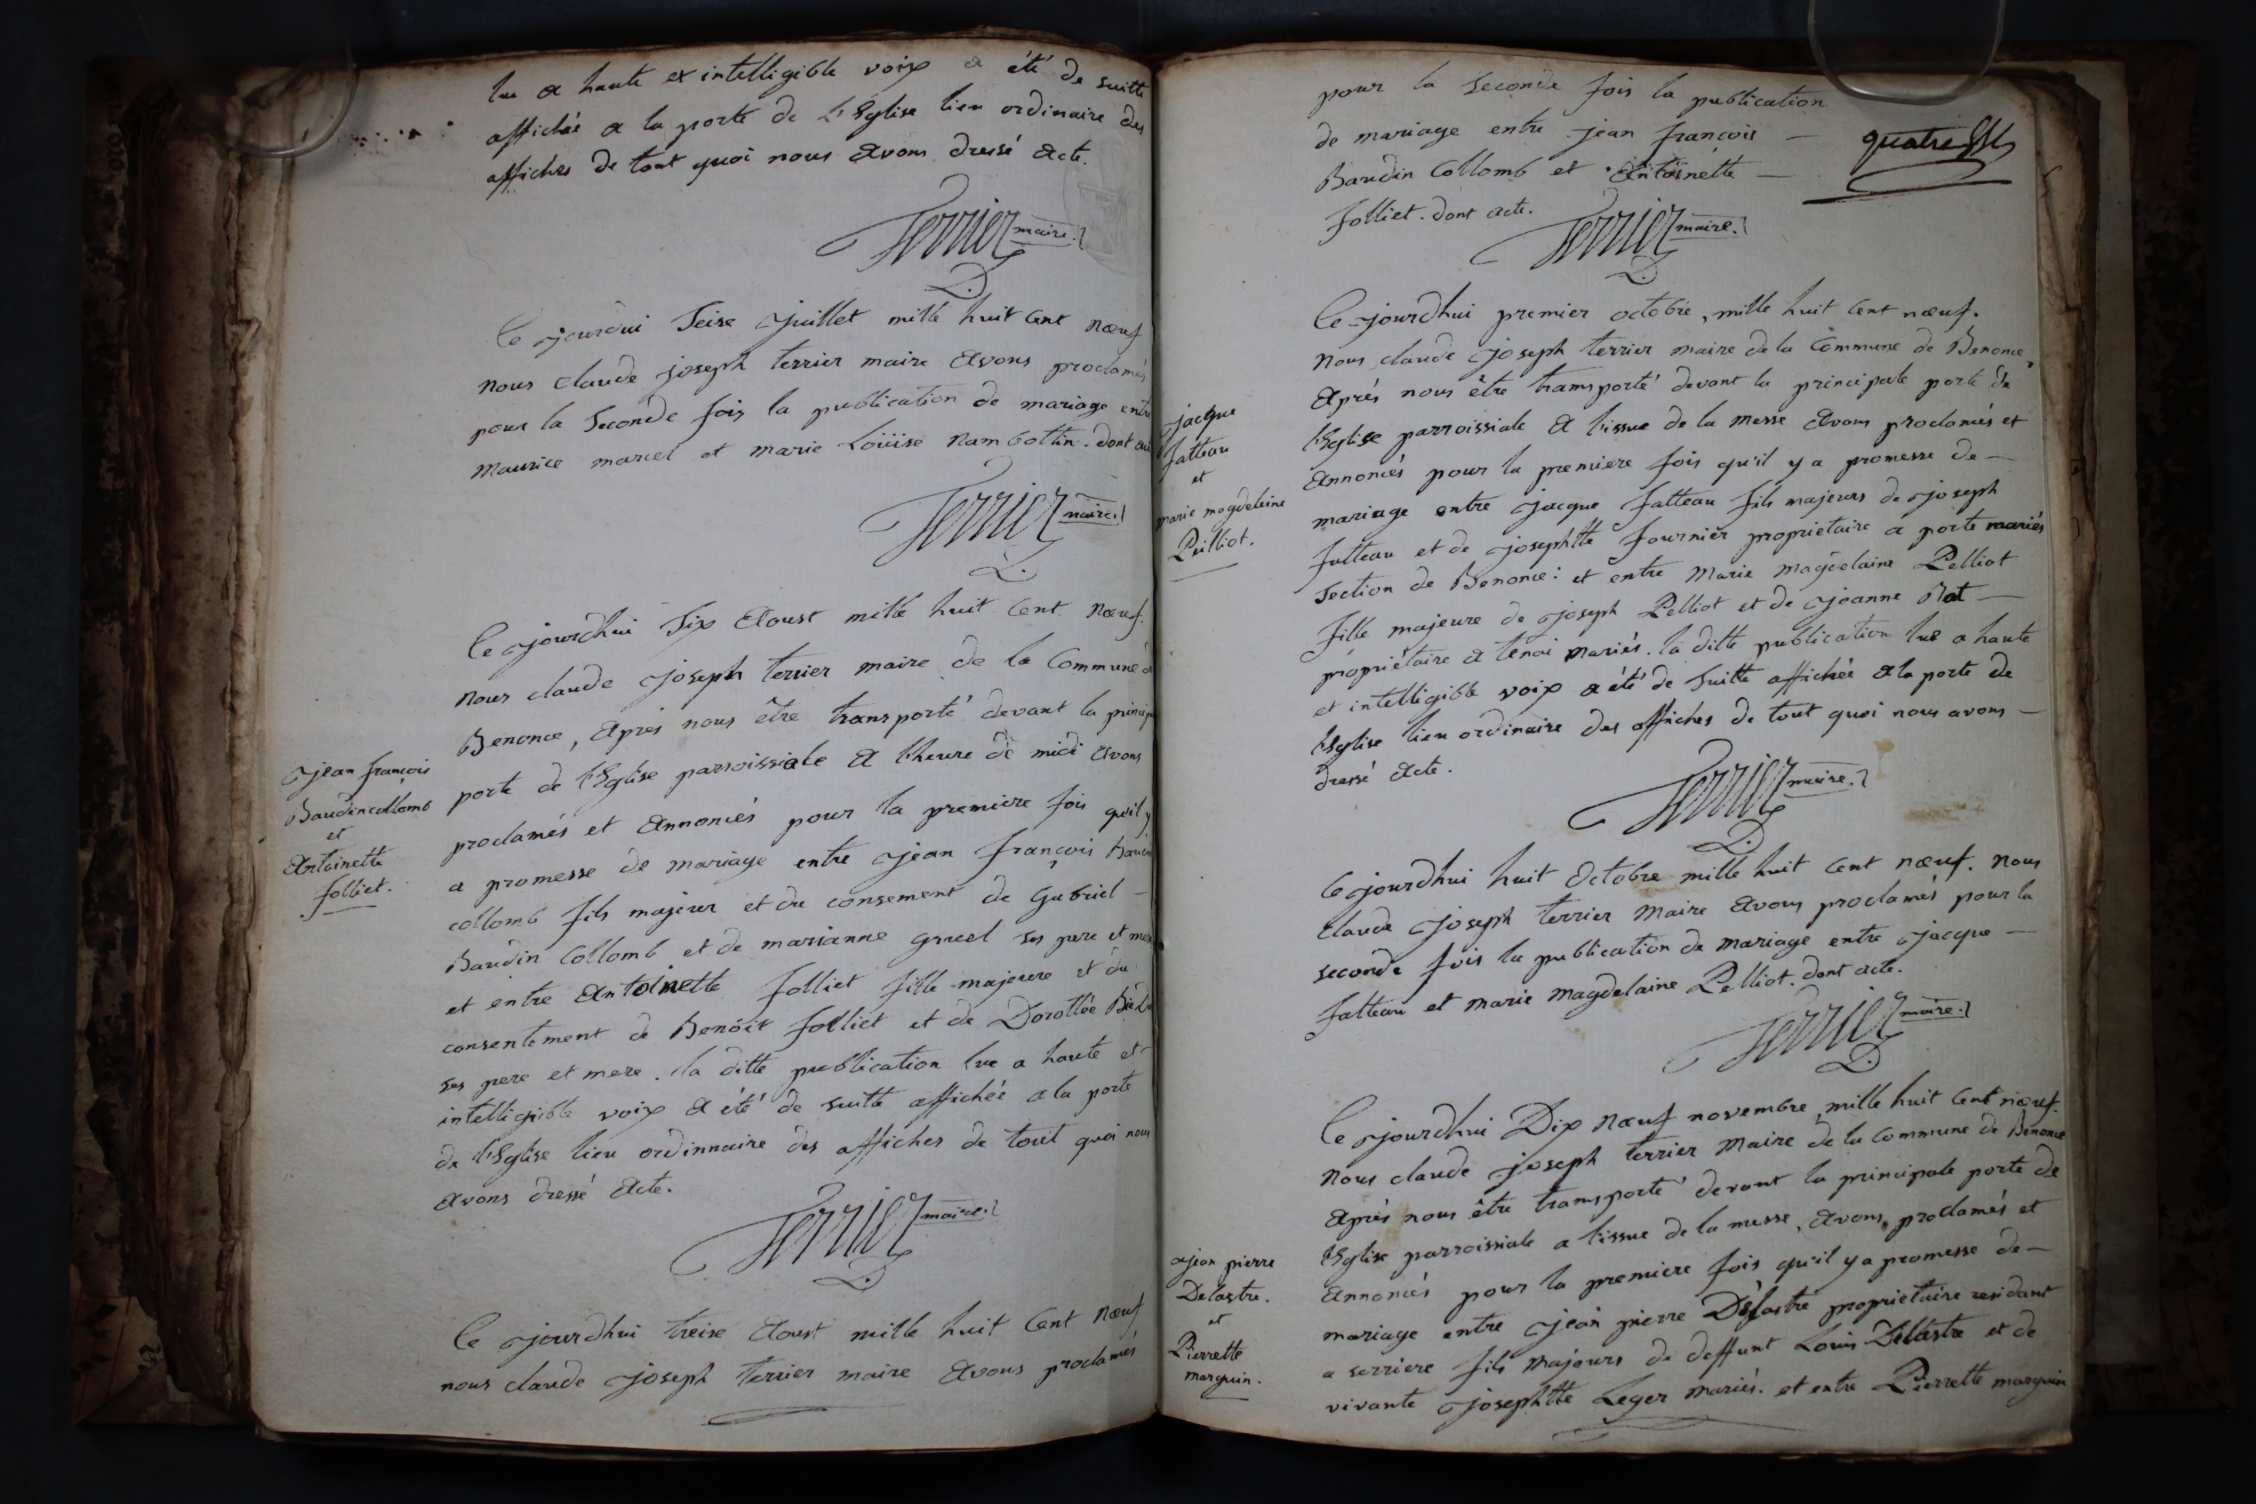 lue a haute et intelligible voix a été de suitte
affichée a la porte de L'Eglise lieu ordinaire des
affiches de tout quoi nous avons dressé acte.
Terrier maire.
Ce jourdui Seise juillet mille huit Cent nœuf
nous claude joseph terrier maire avons proclamés
pour la Seconde fois la publication de mariage entre
maurice marcel et marie Loüise nambottin. dont acte
Terrier maire.
Ce jourdhui Six aoust mille huit Cent nœuf.
nous claude joseph terrier maire de la Commune de
Benonce, apres nous être transporté devant la
porte de l'Eglise parroissiale a l'heure de midi avons
proclamés et annoncés pour la premiere fois qu'il y
a promesse de mariage entre jean françois Baudin
collomb fils majeur et du consement de Gabriel —
Baudin Collomb et de marianne gruel ses pere et mere
et entre antoinette folliet fille majeure et du
consentement de Benoit folliet et de Dorothée
ses pere et mere. la ditte publication lue a haute et
intelligible voix a été de suitte affichée a la porte
de l'Eglise lieu ordinnaire des affiches de tout quoi nous
avons dressé acte.
Terrier maire.
jean françois
Baudin collomb
et
antoinette
folliet.
Ce jourdhui treise aoust mille huit Cent nœuf
nous claude joseph terrier maire avons proclamés
pour la seconde fois la publication
de mariage entre jean françois —
Baudin Collomb et antoinette —
folliet. dont acte.
quatre
Terrier maire.
Ce jourdhui premier octobre, mille huit Cent nœuf.
nous claude joseph terrier maire de la Commune de Benonce,
après nous être transporté devant la principale porte de
l'Eglise parroissiale a l'issue de la messe avons proclamés et
annoncés pour la premiere fois qu'il y a promesse de —
mariage entre jacque falteau fils majeurs de joseph
falteau et de josephtte fournier propriétaire a porte mariés
section de Benonce: et entre Marie magdelaine Pelliot
fille majeure de joseph Pelliot et de jeanne —
propriétaire a tenai mariés. la ditte publication lue a haute
et intelligible voix a été de suitte affichée a la porte de
l'Eglise lieu ordinaire des affiches de tout quoi nous avons —
dressé acte.
Terrier maire.
jacque
falteau
et
marie magdeleine
Pelliot.
Ce jourdhui huit octobre mille huit Cent nœuf. nous
claude joseph terrier maire avons proclamés pour la
seconde fois la publication de mariage entre jacque —
falteau et marie magdelaine Pelliot. dont acte.
Terrier maire.
Ce jourdhui Dix nœuf novembre mille huit Cent nœuf.
nous claude joseph terrier maire de la Commune de Benonce
après nous être transporté devant la principale porte de
l'Eglise parroissiale a l'issue de la messe, avons proclamés et
annoncés pour la premiere fois qu'il y a promesse de —
mariage entre jean pierre Delastre propriétaire residant
a serriere fils majeurs de deffunt Louis Delastre et de
vivante josephtte Leger mariés. et entre Pierrette marguin
jean pierre
Delastre.
et
Pierrette
marguin.